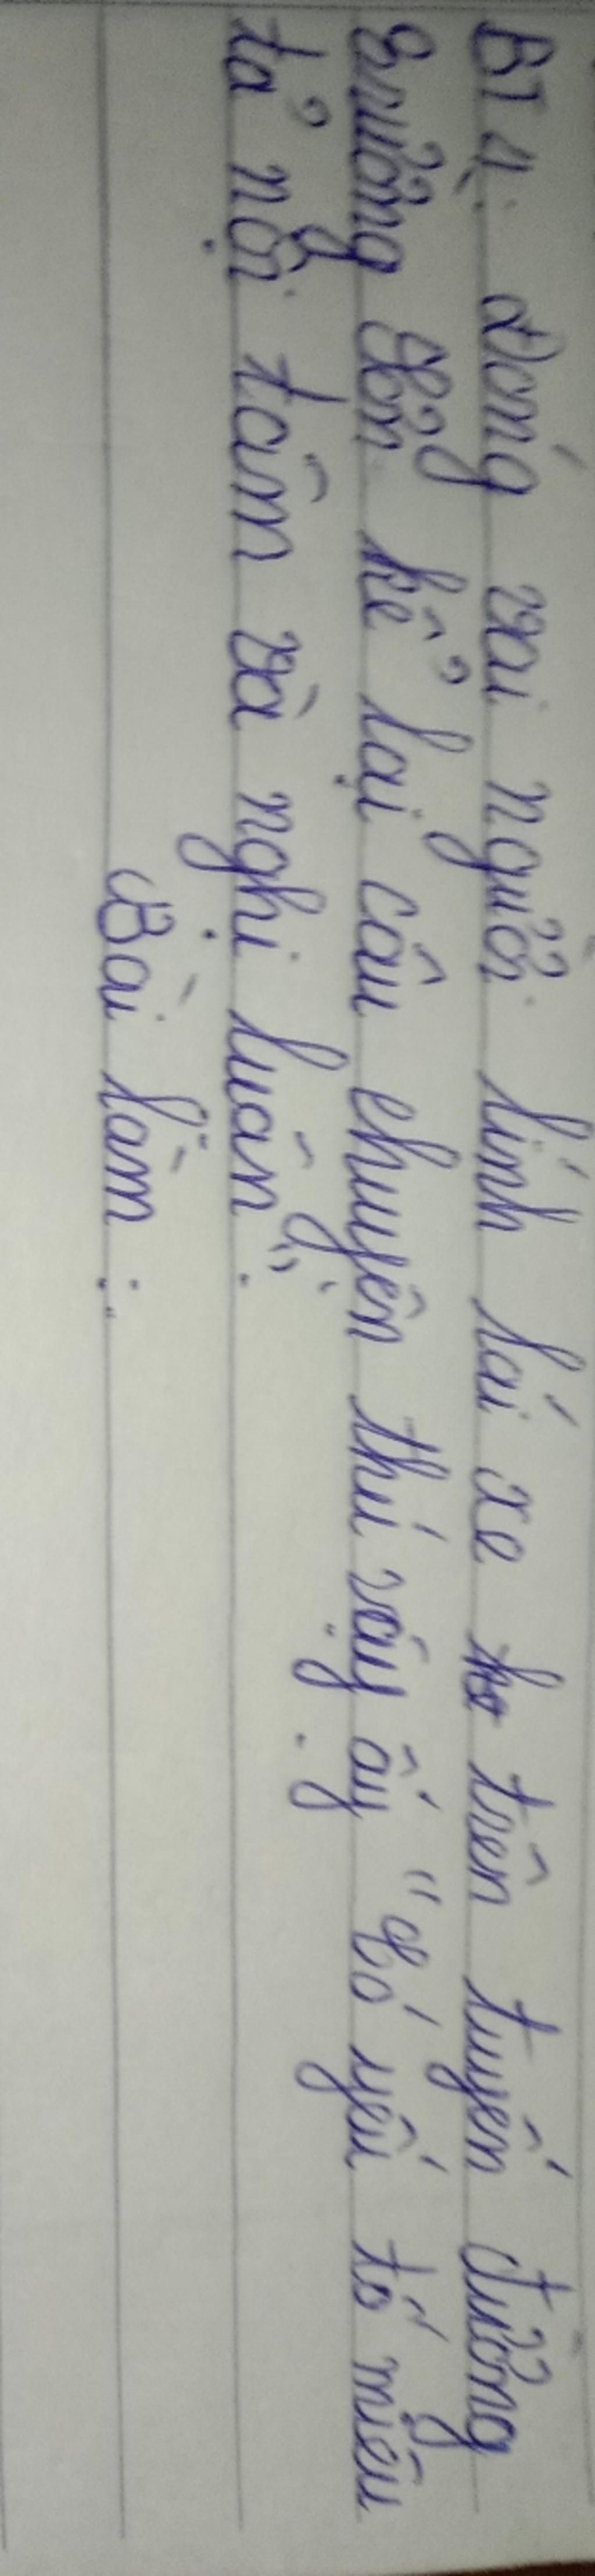 BT 4: Đóng vai người lính lái xe trên tuyến đường
Trường Sơn kể lại câu chuyện thú vậy ấy "Có yếu tố miêu
tả nội tâm và nghị luận".
Bài làm: